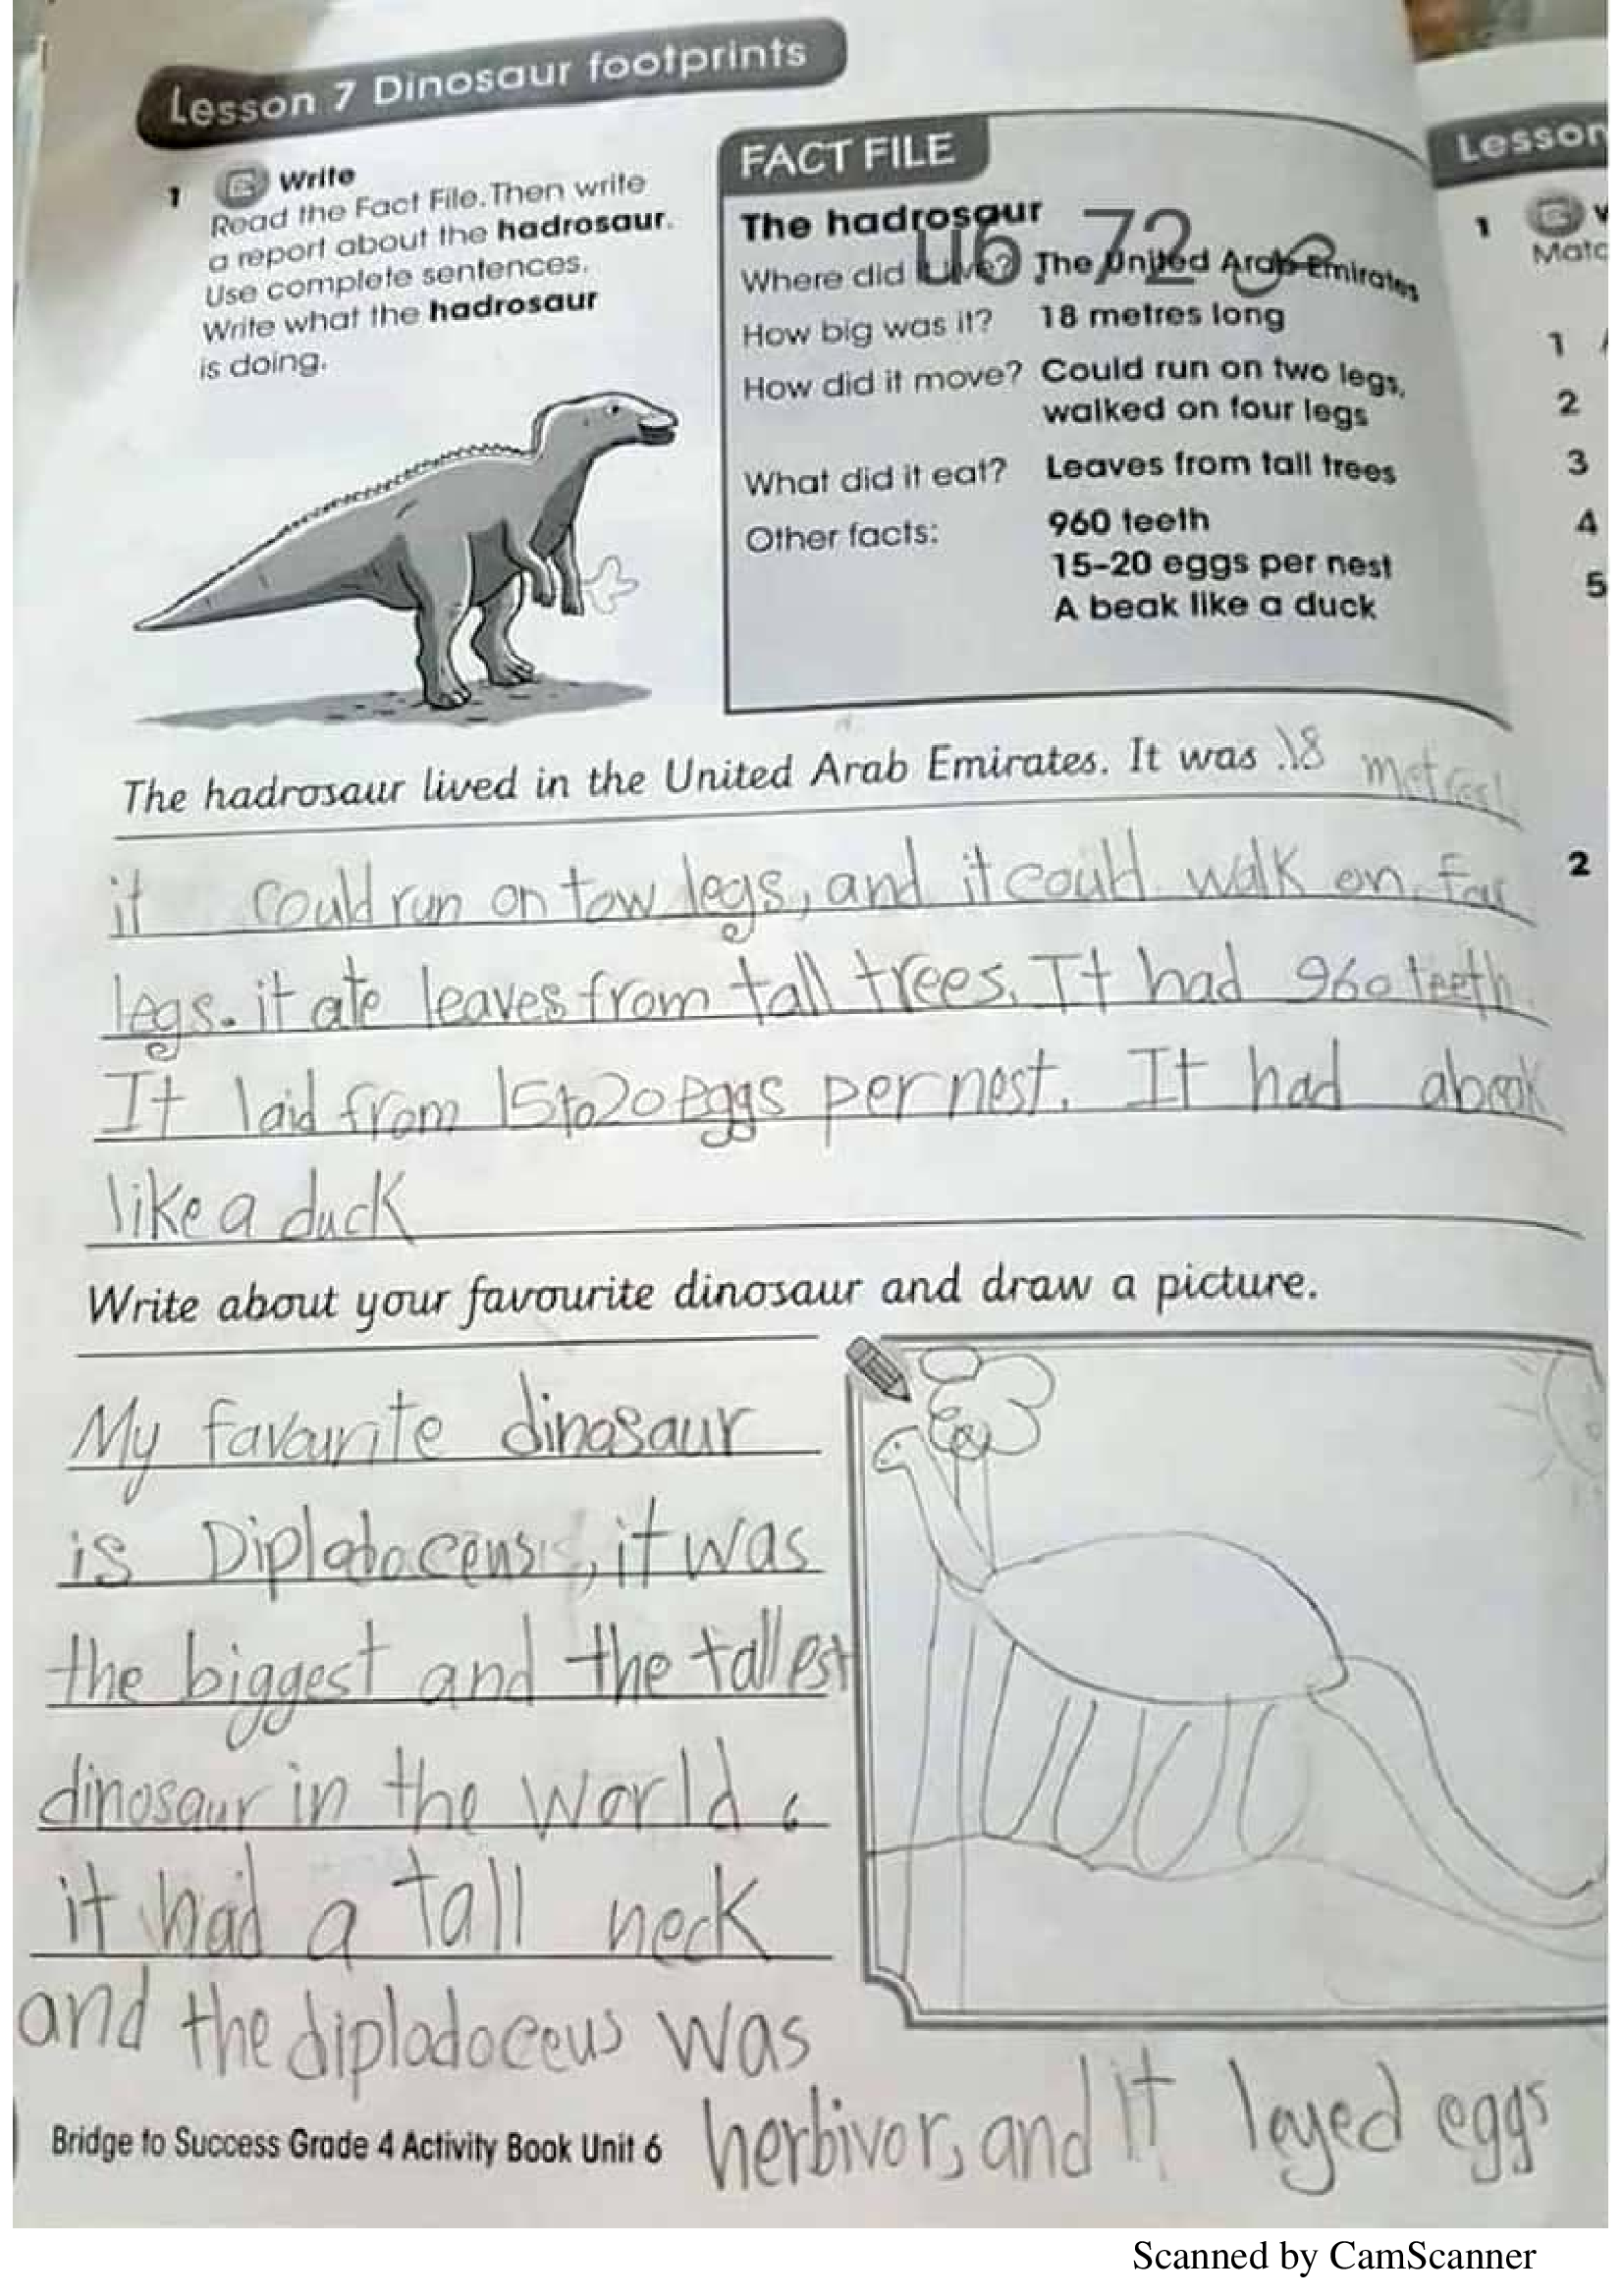 Lesson 7 Dinosaur footprints
1 Write
Read the Fact File. Then write
a report about the hadrosaur.
Use complete sentences.
Write what the hadrosaur
is doing.
FACT FILE
The hadrosaur
u6. 72
Where did live? The United Arab Emirates
How big was it? 18 metres long
How did it move? Could run on two legs,
walked on four legs
What did it eat? Leaves from tall trees
Other facts: 960 teeth
15–20 eggs per nest
A beak like a duck
Lesson
1
Matc
1
2
3
4
5
2
The hadrosaur lived in the United Arab Emirates. It was 18 metres
it could run on tow legs, and it could walk on
legs. it ate leaves from tall trees. It had 960 teeth
It laid from 15 to 20 eggs per nest. It had a
like a duck
Write about your favourite dinosaur and draw a picture.
My favourite dinosaur
is , it was
the biggest and the tallest
dinosaur in the world
it had a tall neck
and the diplodoceus was
herbivor, and it layed eggs
Bridge to Success Grade 4 Activity Book Unit 6
Scanned by CamScanner